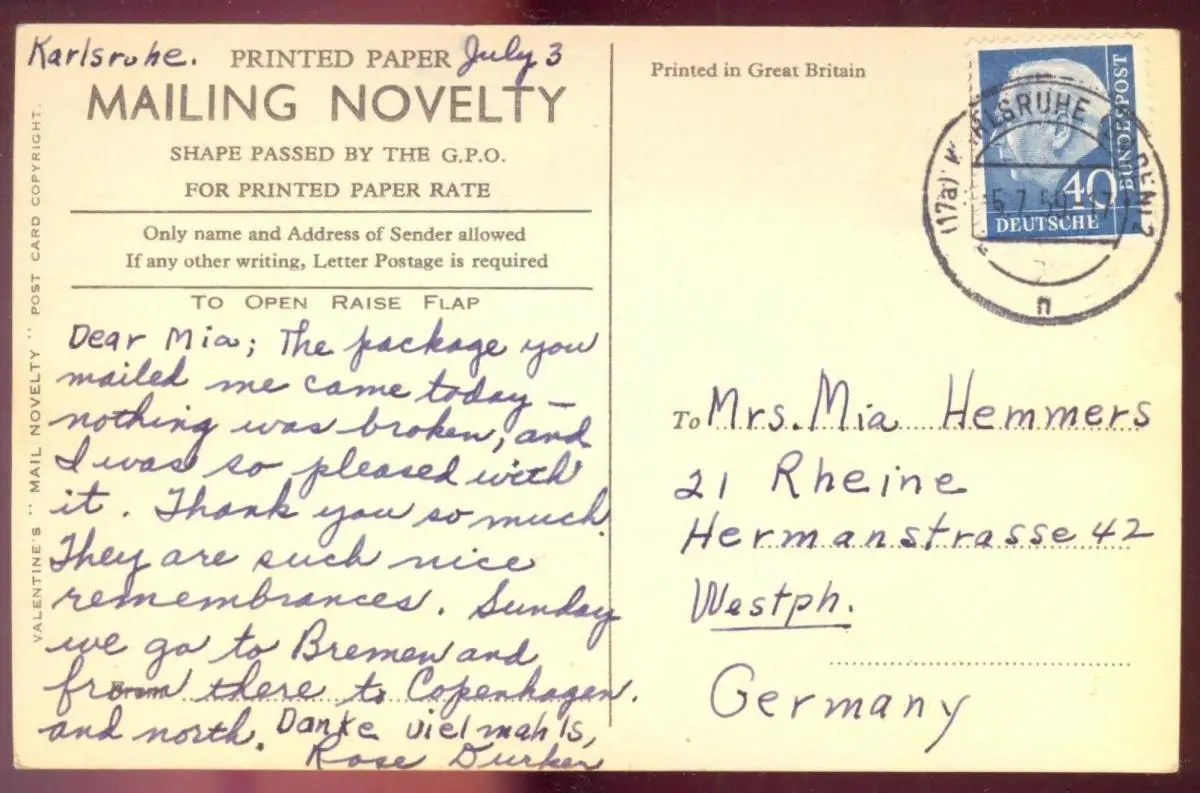 Karlsruhe. PRINTED PAPER July 3
MAILING NOVELTY
SHAPE PASSED BY THE G.P.O.
FOR PRINTED PAPER RATE
Only name and Address of Sender allowed
If any other writing, Letter Postage is required
TO OPEN RAISE FLAP
Dear Mia; The package you
mailed me came today —
nothing was broken, and
I was so pleased with
it. Thank you so much.
They are such nice
remembrances. Sunday
we go to Bremen and
from there to Copenhagen.
and north. Danke vielmahls,
Rose Durker
VALENTINE'S "MAIL NOVELTY" POST CARD COPYRIGHT.
Printed in Great Britain
BUNDESPOST
40
DEUTSCHE
(17a) KARLSRUHE
n
To Mrs. Mia Hemmers
21 Rheine
Hermanstrasse 42
Westph.
Germany